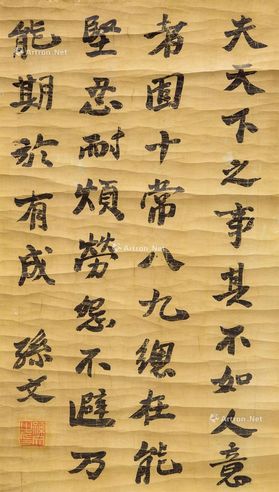 夫天下之事其不如人意
者固十常八九總在能
堅忍耐煩勞怨不避乃
能期於有成
孫文
Artron.Net
Artron.Net
Artron.Net
Artron.Net